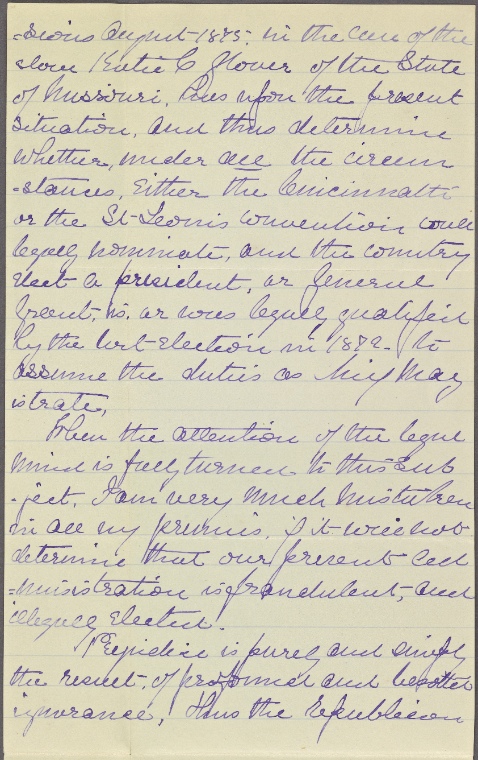 -sions August 1885. in the case of the
slave Katie C Glover of the State
of Missouri, has upon the present
situation, and thus determine
whether, under all the circum
-stances, Either the Cincinnatti
or the St-Leouis convention could
legally nominate, and the country
elect a president, or General
Grant, is, or was legally qualified
by the last-Election in 1872- to
assume the duties as Chief Mag
istrate,
When the attention of the legal
mind is fully turned to this sub
-ject, I am very much mistaken
in all my premis, if it will not
determine that our present ad
-ministration is fraudulent, and
illegally Elected.
Prejudice is purely and simply
the result, of profound and besotted
ignorance, Thus the Republican